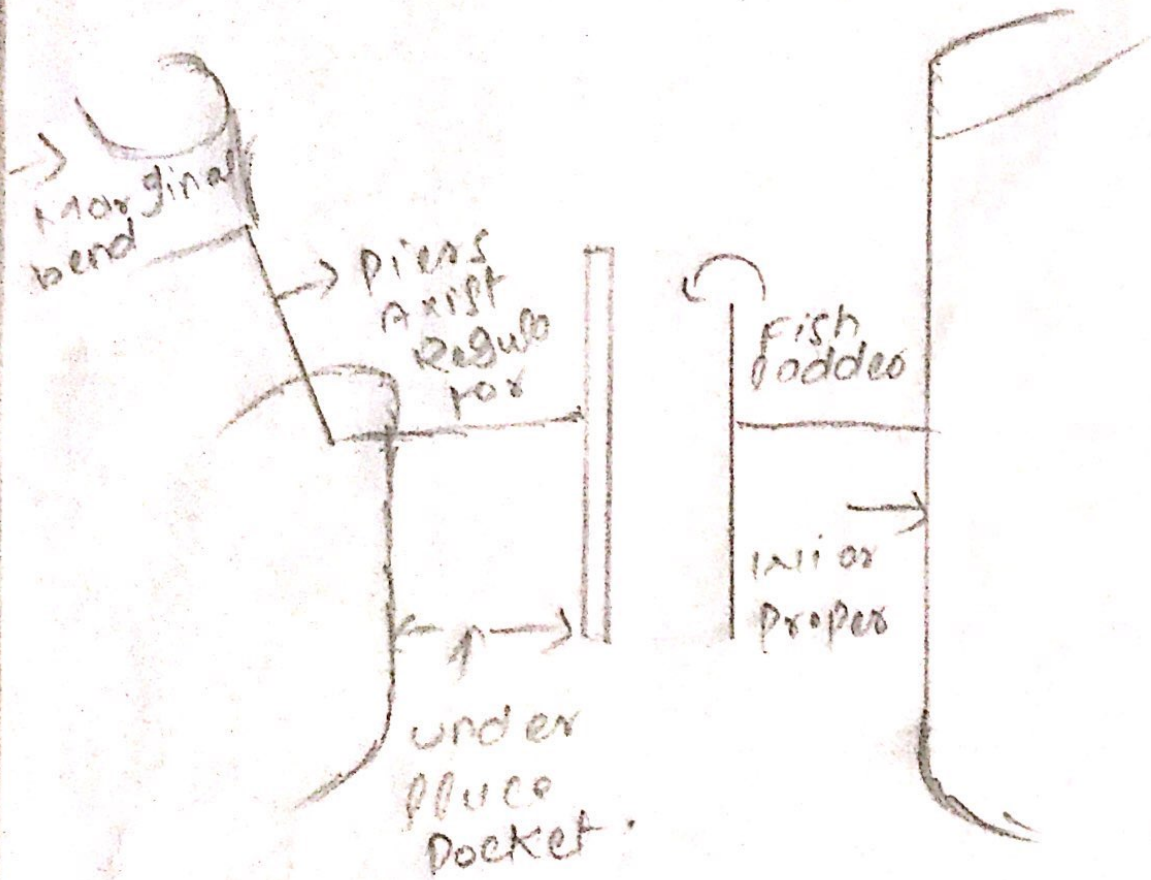 Marginal
bend
Piers
Axist
Regula
tor
Fish
ladder
Wier
Proper
under
sluce
Pocket.